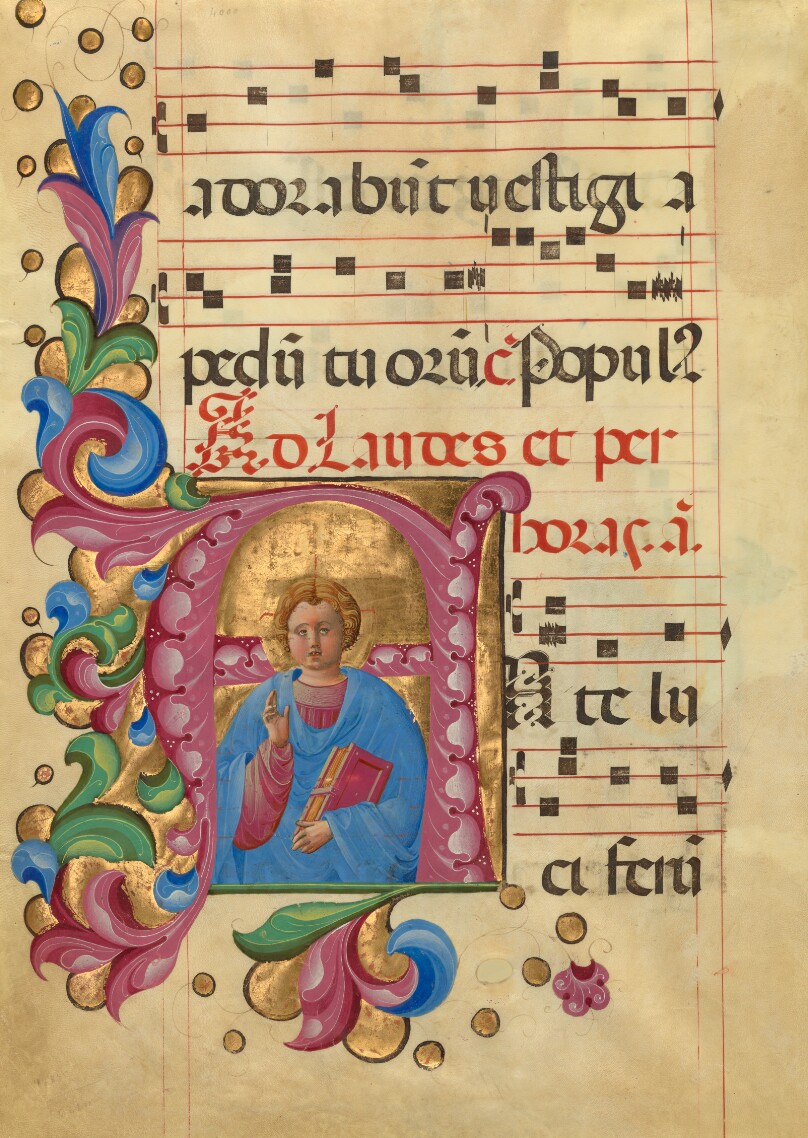 adorabūt uestigi a
pedū tu orū. c̄ Popul2
Ad Laudes et per
horas. a̅.
An te lu
ci ferū